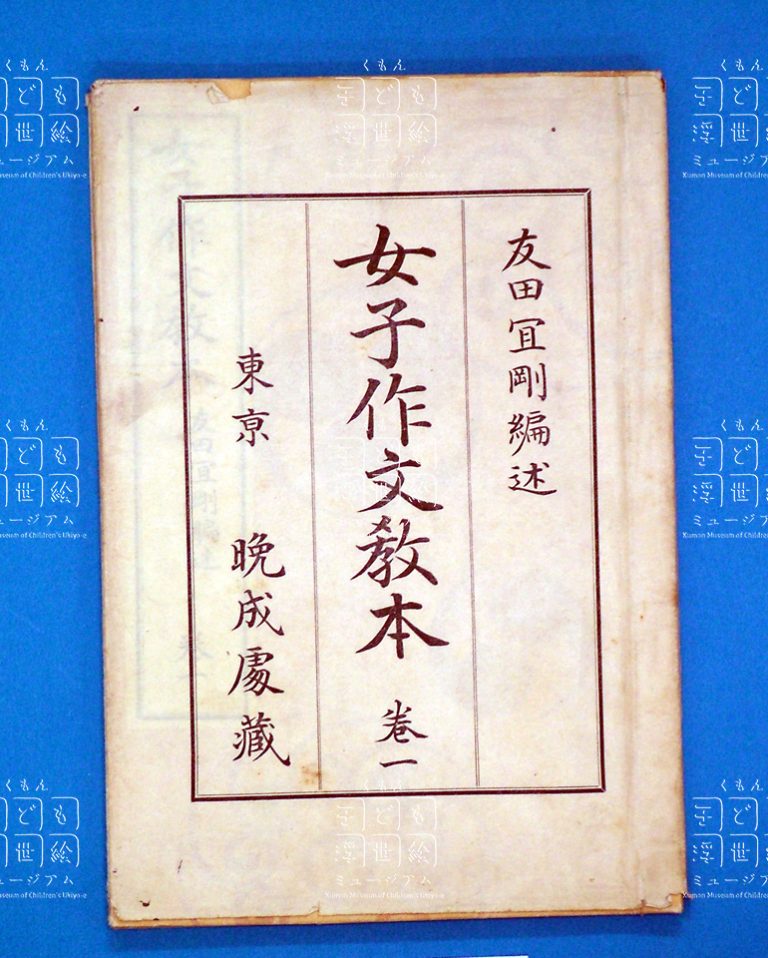 友田冝剛編述
女子作文教本 巻一
東京 晩成處藏
くもん
子ども
浮世絵
ミュージアム
Kumon Museum of Children's Ukiyo-e